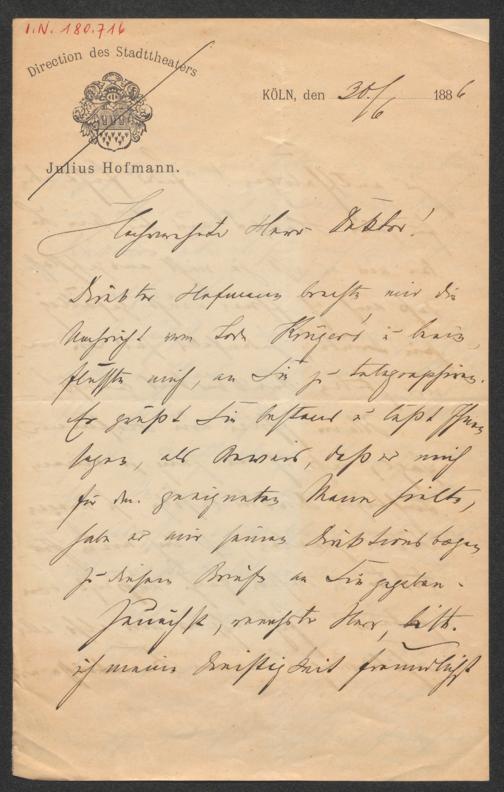 I.N. 180.716
Direction des Stadttheaters
Julius Hofmann.
KÖLN, den 30./6 1886
Hochverehrter Herr Direktor!
Direktor Hofmann brachte mir die
Nachricht vom Tode Krüger's u. beein-
flußte mich, an Sie zu telegraphiren.
Er grüßt Sie bestens u. läßt Ihnen
sagen, als Beweis, daß er mich
für den geeigneten Mann hielte,
habe er mir seinen Direktionsbogen
zu diesem Briefe an Sie gegeben.
Zunächst, verehrter Herr, bitte
ich meine Dreistigkeit freundlichst